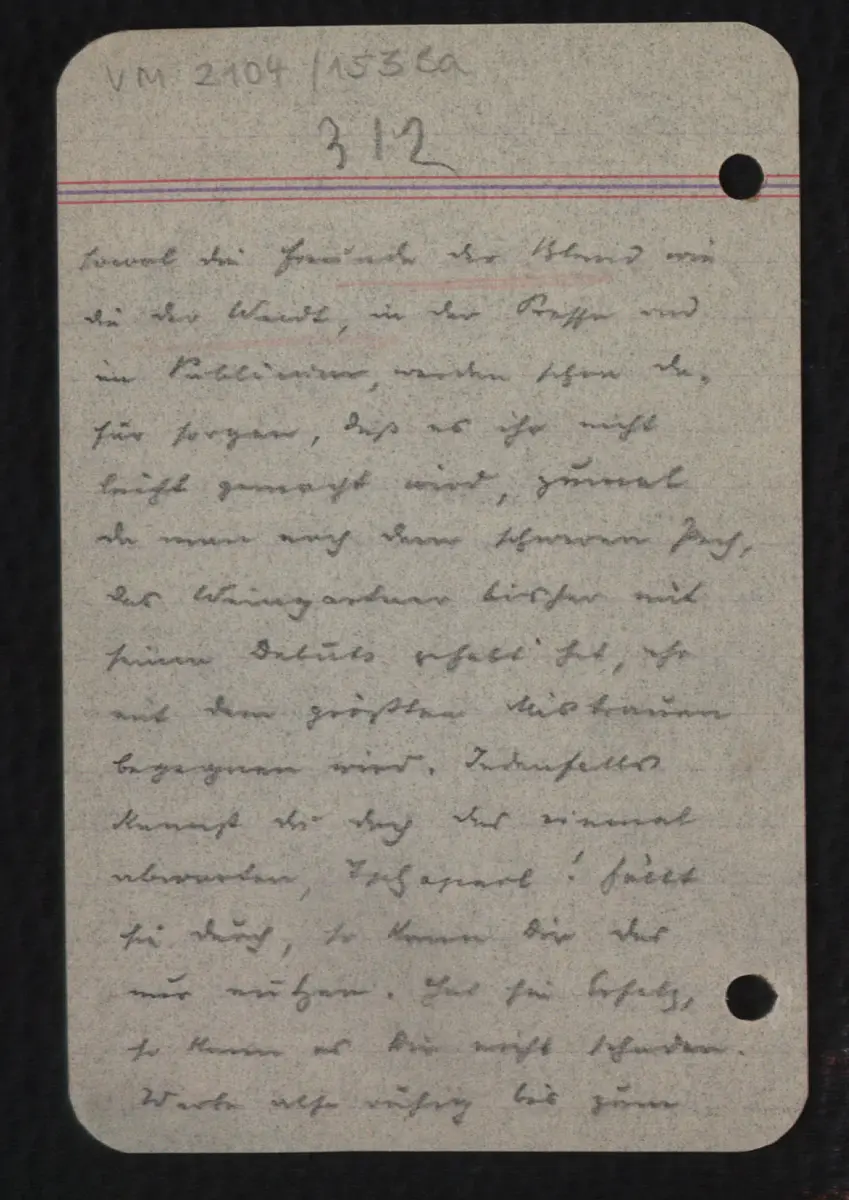 VM 2104 /153 Ba
312
sowol die Freunde der Bland wie
die der Weidt, in der Presse und
im Publicum, werden schon da-
für sorgen, daß es ihr nicht
leicht gemacht wird, zumal
da man nach dem schweren Pech,
das Weingartner bisher mit
seinen Debuts gehabt hat, ihr
mit dem größten Mistrauen
begegnen wird. Jedenfalls
kannst du doch das einmal
abwarten, Tschaperl! Fällt
sie durch, so kann Dir das
nur nützen. Hat sie Erfolg,
so kann es Dir nicht schaden.
Warte also ruhig bis zum